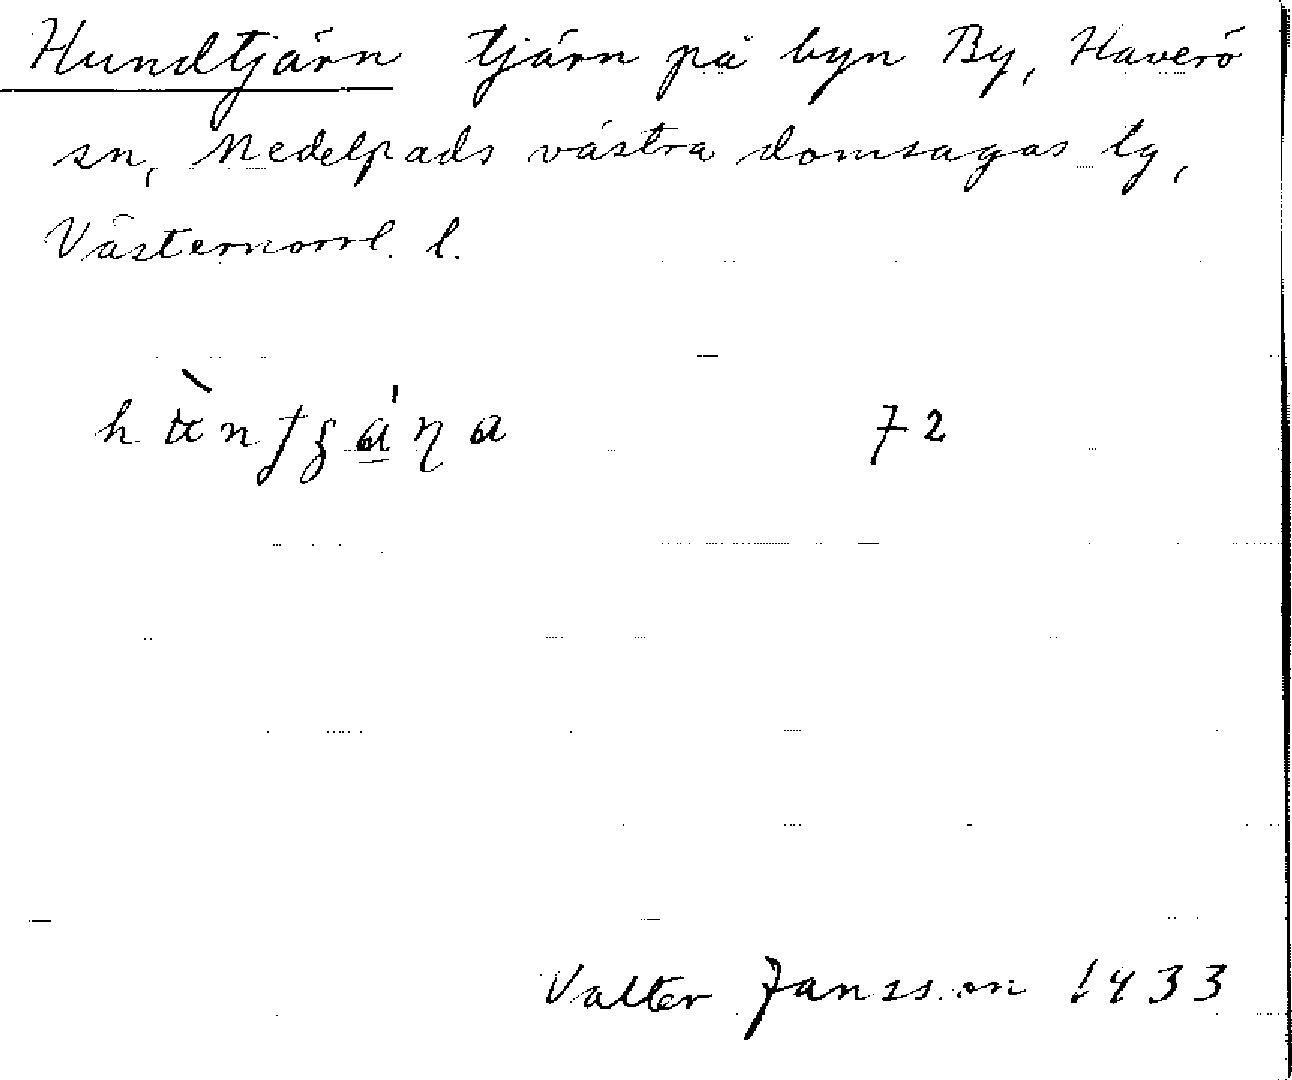 Hundtjärn tjärn på byn By, Haverö
sn, Medelpads västra domsagas tg,
Västernorrl. l.
72
Valter Jansson 1933